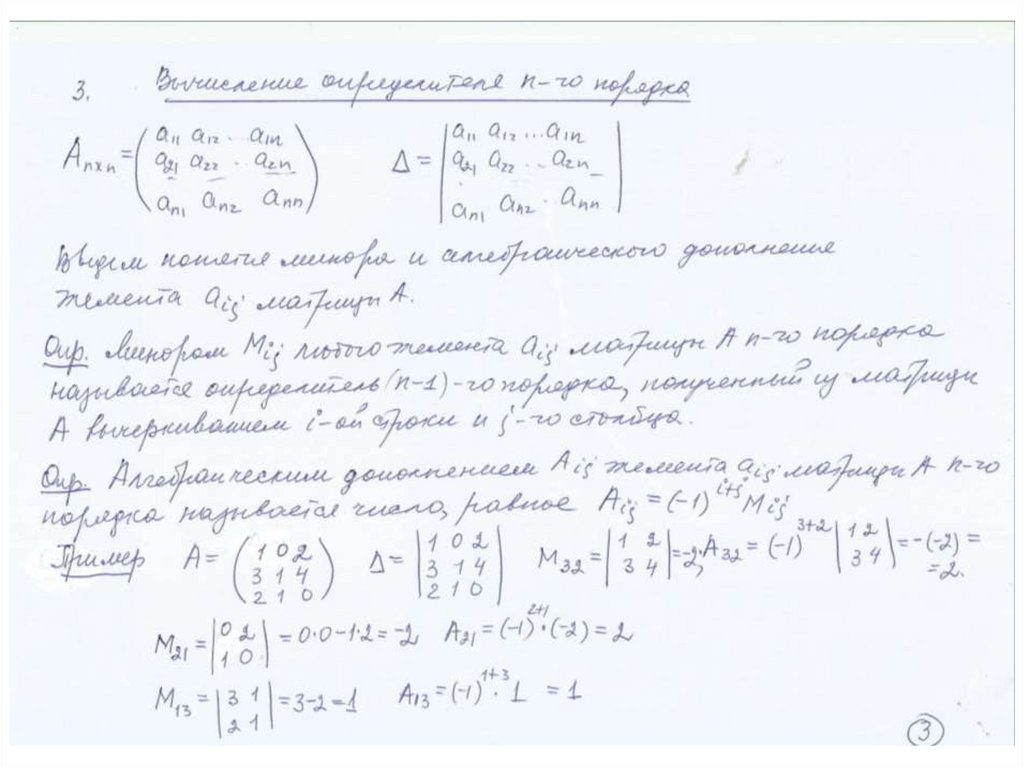 3. Вычисление определителя n-го порядка
Aₙₓₙ = (a₁₁ a₁₂ .. a₁ₙ
a₂₁ a₂₂ .. a₂ₙ
aₙ₁ aₙ₂ aₙₙ) Δ = |a₁₁ a₁₂ ... a₁ₙ
a₂₁ a₂₂ .. a₂ₙ
aₙ₁ aₙ₂ . aₙₙ|
Введем понятие минора и алгебраического дополнения
элемента aᵢⱼ матрицы A.
Опр. Минором Mᵢⱼ любого элемента aᵢⱼ матрицы A n-го порядка
называется определитель (n-1)-го порядка, полученный из матрицы
A вычеркиванием i-ой строки и j-го столбца.
Опр. Алгебраическим дополнением Aᵢⱼ элемента aᵢⱼ матрицы A n-го
порядка называется число, равное Aᵢⱼ = (-1)ⁱ⁺ʲ Mᵢⱼ
Пример A = (1 0 2
3 1 4
2 1 0) Δ = |1 0 2
3 1 4
2 1 0| M₃₂ = |1 2
3 4| = -2; A₃₂ = (-1)³⁺² |1 2
3 4| = -(-2) =
= 2.
M₂₁ = |0 2
1 0| = 0·0-1·2 = -2 A₂₁ = (-1)²⁺¹·(-2) = 2
M₁₃ = |3 1
2 1| = 3-2 = 1 A₁₃ = (-1)¹⁺³·1 = 1
3